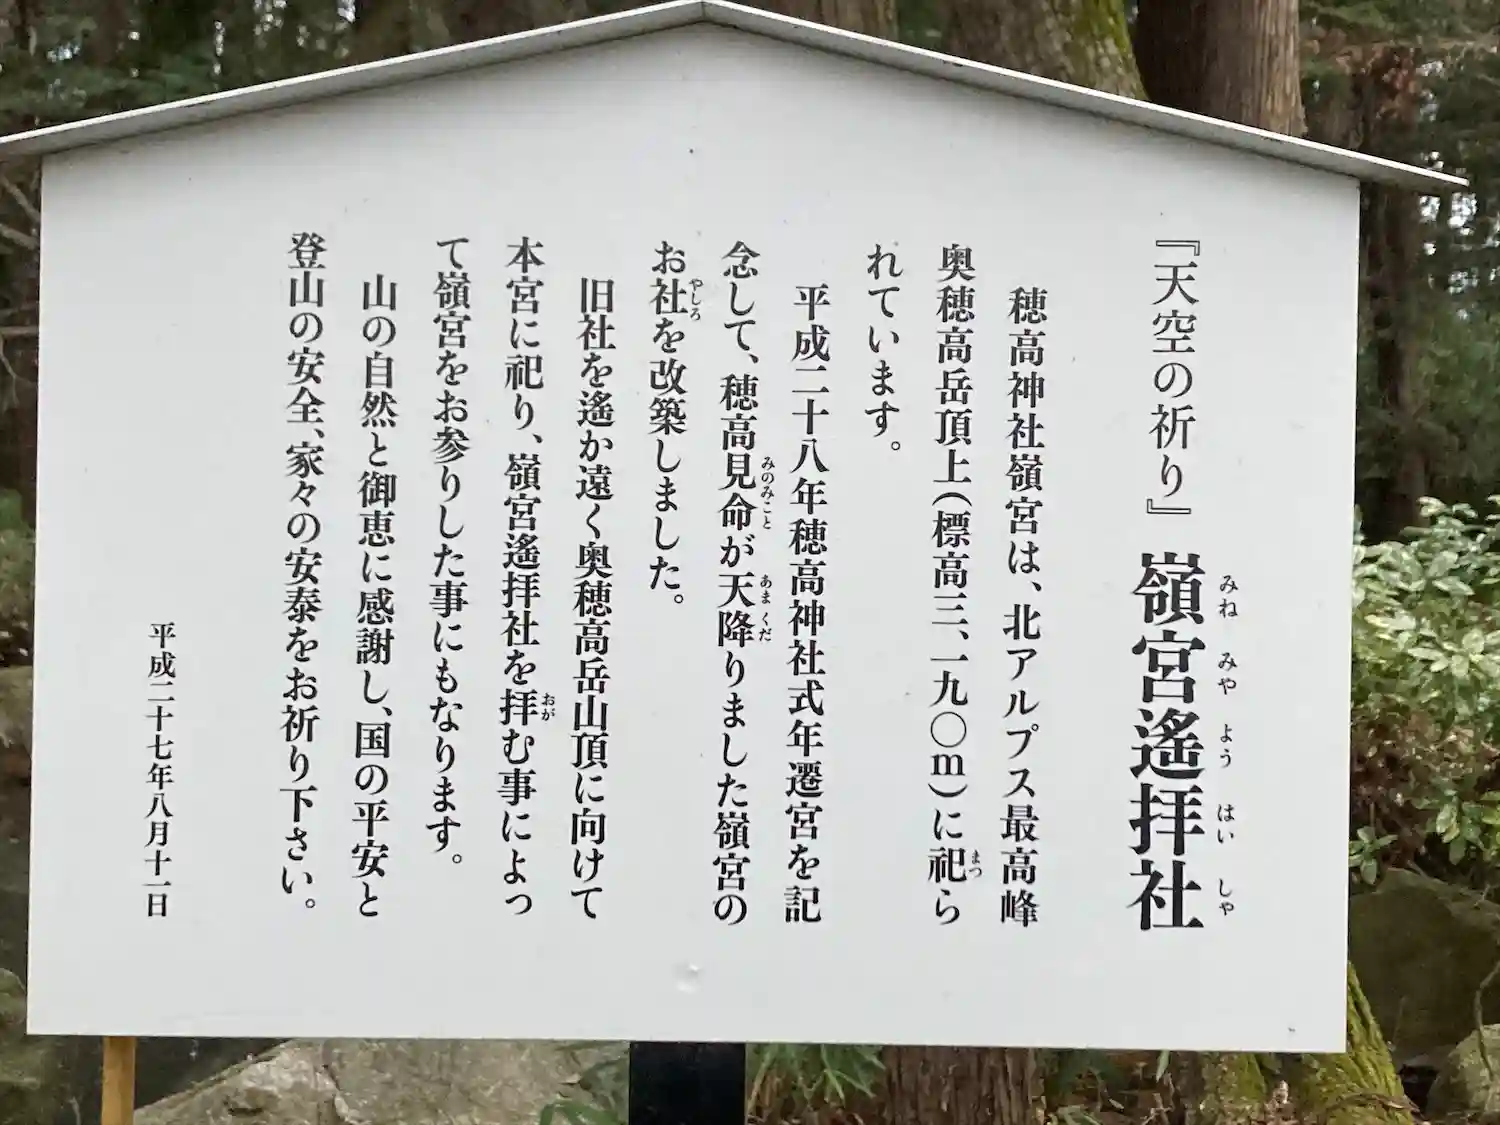 『天空の祈り』嶺宮遙拝社
みねみやようはいしゃ
穂高神社嶺宮は、北アルプス最高峰
奥穂高岳頂上(標高三、一九〇m)に祀ら
まつ
れています。
平成二十八年穂高神社式年遷宮を記
念して、穂高見命が天降りました嶺宮の
みのみこと
あまくだ
お社を改築しました。
やしろ
旧社を遙か遠く奥穂高岳山頂に向けて
本宮に祀り、嶺宮遙拝社を拝む事によっ
おが
て嶺宮をお参りした事にもなります。
山の自然と御恵に感謝し、国の平安と
登山の安全、家々の安泰をお祈り下さい。
平成二十七年八月十一日